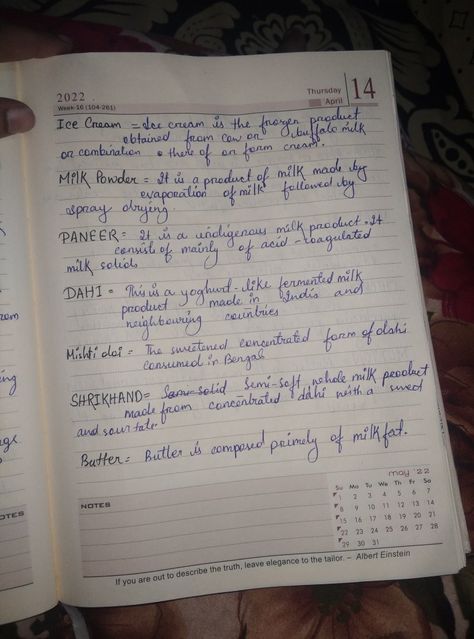 2022
Week-16 (104-261)
Thursday
April
14
Ice Cream = Ice cream is the frozen product
obtained from cow or buffalo milk
or combination there of or form cream.
Milk Powder = It is a product of milk made by
evaporation of milk followed by
spray drying
PANEER = It is a indigenous milk product. It
consist of mainly of acid-coagulated
milk solids
DAHI = This is a yoghurd-like fermented milk
product made in India and
neighbouring countries
Mishti doi = The sweetened concentrated form of dahi
consumed in Bengal
SHRIKHAND = Semi-solid Semi-soft, whole milk product
made from concentrated dahi with a sweet
and sour tate.
Butter = Butter is composed primely of milk fat.
NOTES
may '22
Su Mo Tu We Th Fr Sa
1 2 3 4 5 6 7
8 9 10 11 12 13 14
15 16 17 18 19 20 21
22 23 24 25 26 27 28
29 30 31
If you are out to describe the truth, leave elegance to the tailor. – Albert Einstein